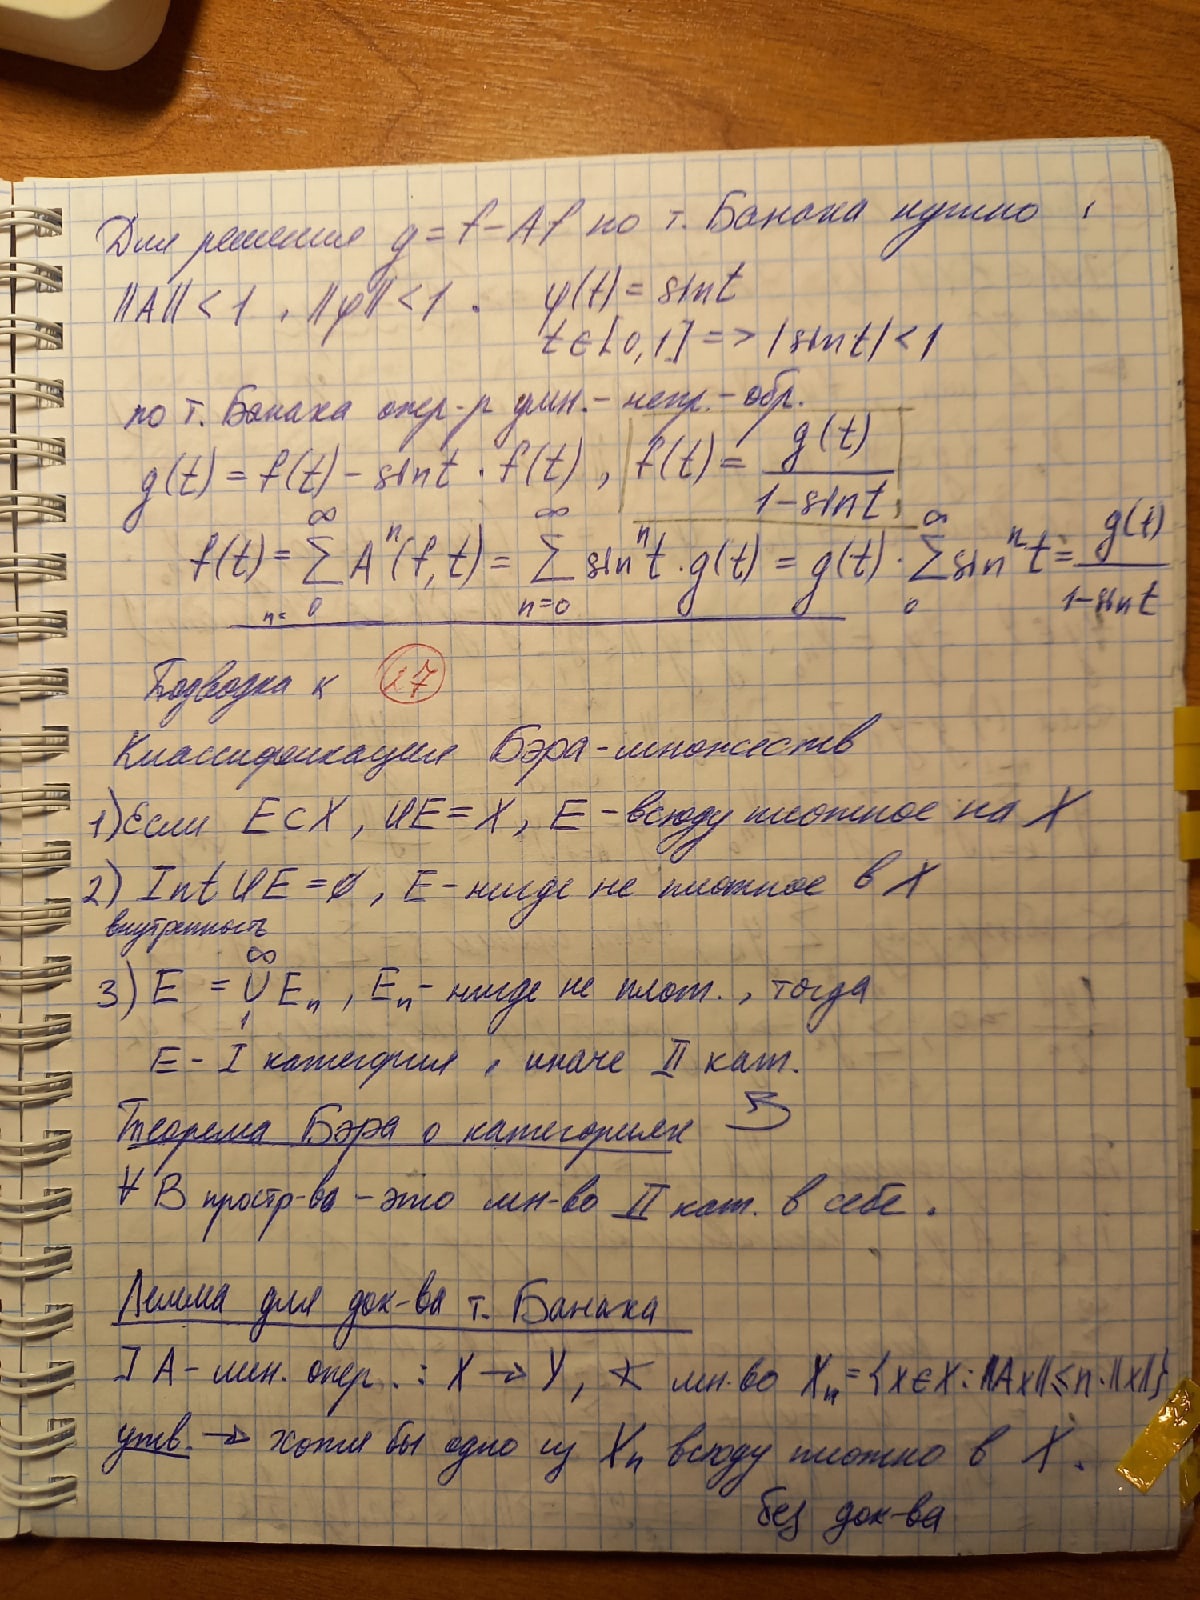 Для решения g = f - Af по т. Банаха нужно
||A|| < 1, ||φ|| < 1. φ(t) = sin t
t ∈ [0,1] => |sin t| < 1
по т. Банаха опер-р умн. - непр. - обр.
g(t) = f(t) - sin t · f(t), f(t) = g(t) / (1 - sin t)
f(t) = ∑_{n=0}^{∞} Aⁿ(f,t) = ∑_{n=0}^{∞} sinⁿt · g(t) = g(t) · ∑_{0}^{∞} sinⁿt = g(t) / (1 - sin t)
Подводка к 27
Классификация Бэра - множеств
1) Если E ⊂ X, clE = X, E - всюду плотное на X
2) Int clE = ∅, E - нигде не плотное в X
внутренность
3) E = ∪_{1}^{∞} Eₙ, Eₙ - нигде не плот., тогда
E - I категория, иначе II кат.
Теорема Бэра о категориях
∀ B простр-во - это мн-во II кат. в себе.
Лемма для док-ва т. Банаха
] A - лин. опер. : X → Y, ∢ мн-во Xₙ = {x ∈ X : ||Ax|| ≤ n·||x||}
утв. → хотя бы одно из Xₙ всюду плотно в X.
без док-ва